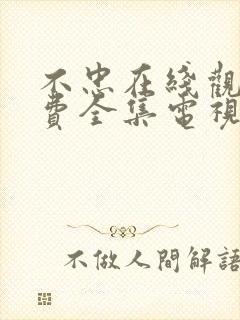 不忠在綫觀
費全集電視
不做人間解語